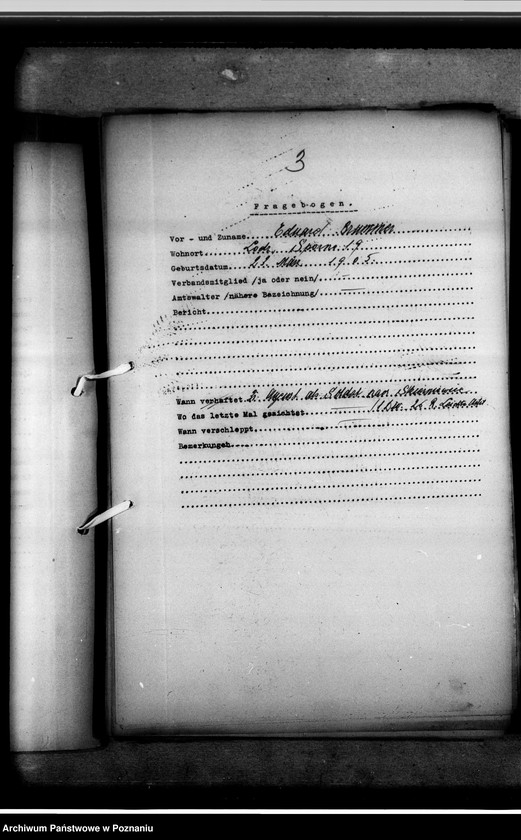 3
Fragebogen.
Vor - und Zuname. Eduard
Wohnort. Lodz, 19
Geburtsdatum. 22. März 1905
Verbandsmitglied /ja oder nein/
Amtswalter /nähere Bezeichnung/
Bericht.
Wann verhaftet. 2. als Soldat nach
Wo das letzte Mal gesichtet.
Wann verschleppt.
Bemerkungen.
Archiwum Państwowe w Poznaniu